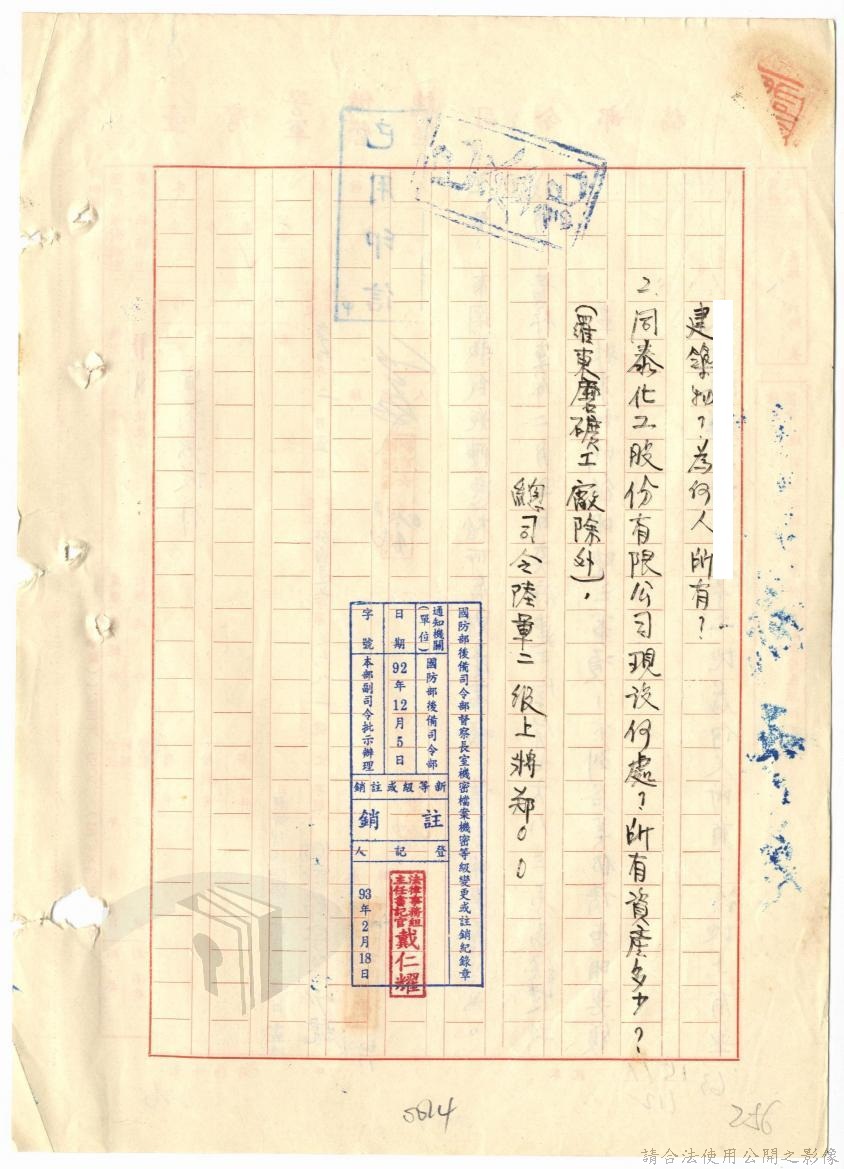 建築物？為何人所有？
2.同泰化工股份有限公司現設何處？所有資產多少？
(羅東磨礦工廠除外)，
總司令陸軍二級上將鄭00
已用印信
國防部後備司令部督察長室機密檔案機密等級變更或註銷紀錄章
通知機關(單位) 國防部後備司令部
日期 92年12月5日
字號 本部副司令批示辦理
新等級或註銷
註銷
登記人
法律事務組
主任書記官
戴仁耀
93年2月18日
0614
256
請合法使用公開之影像